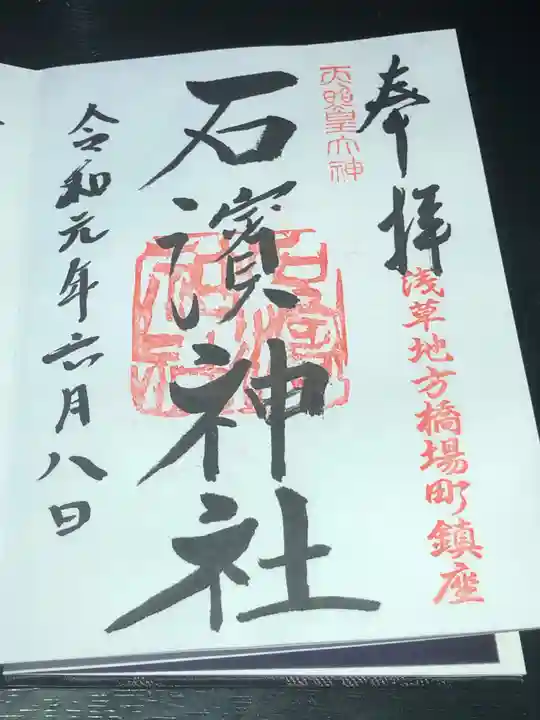 奉拝
浅草地方橋場町鎮座
天照皇大神
石濱神社
石濱神社
令和元年六月八日